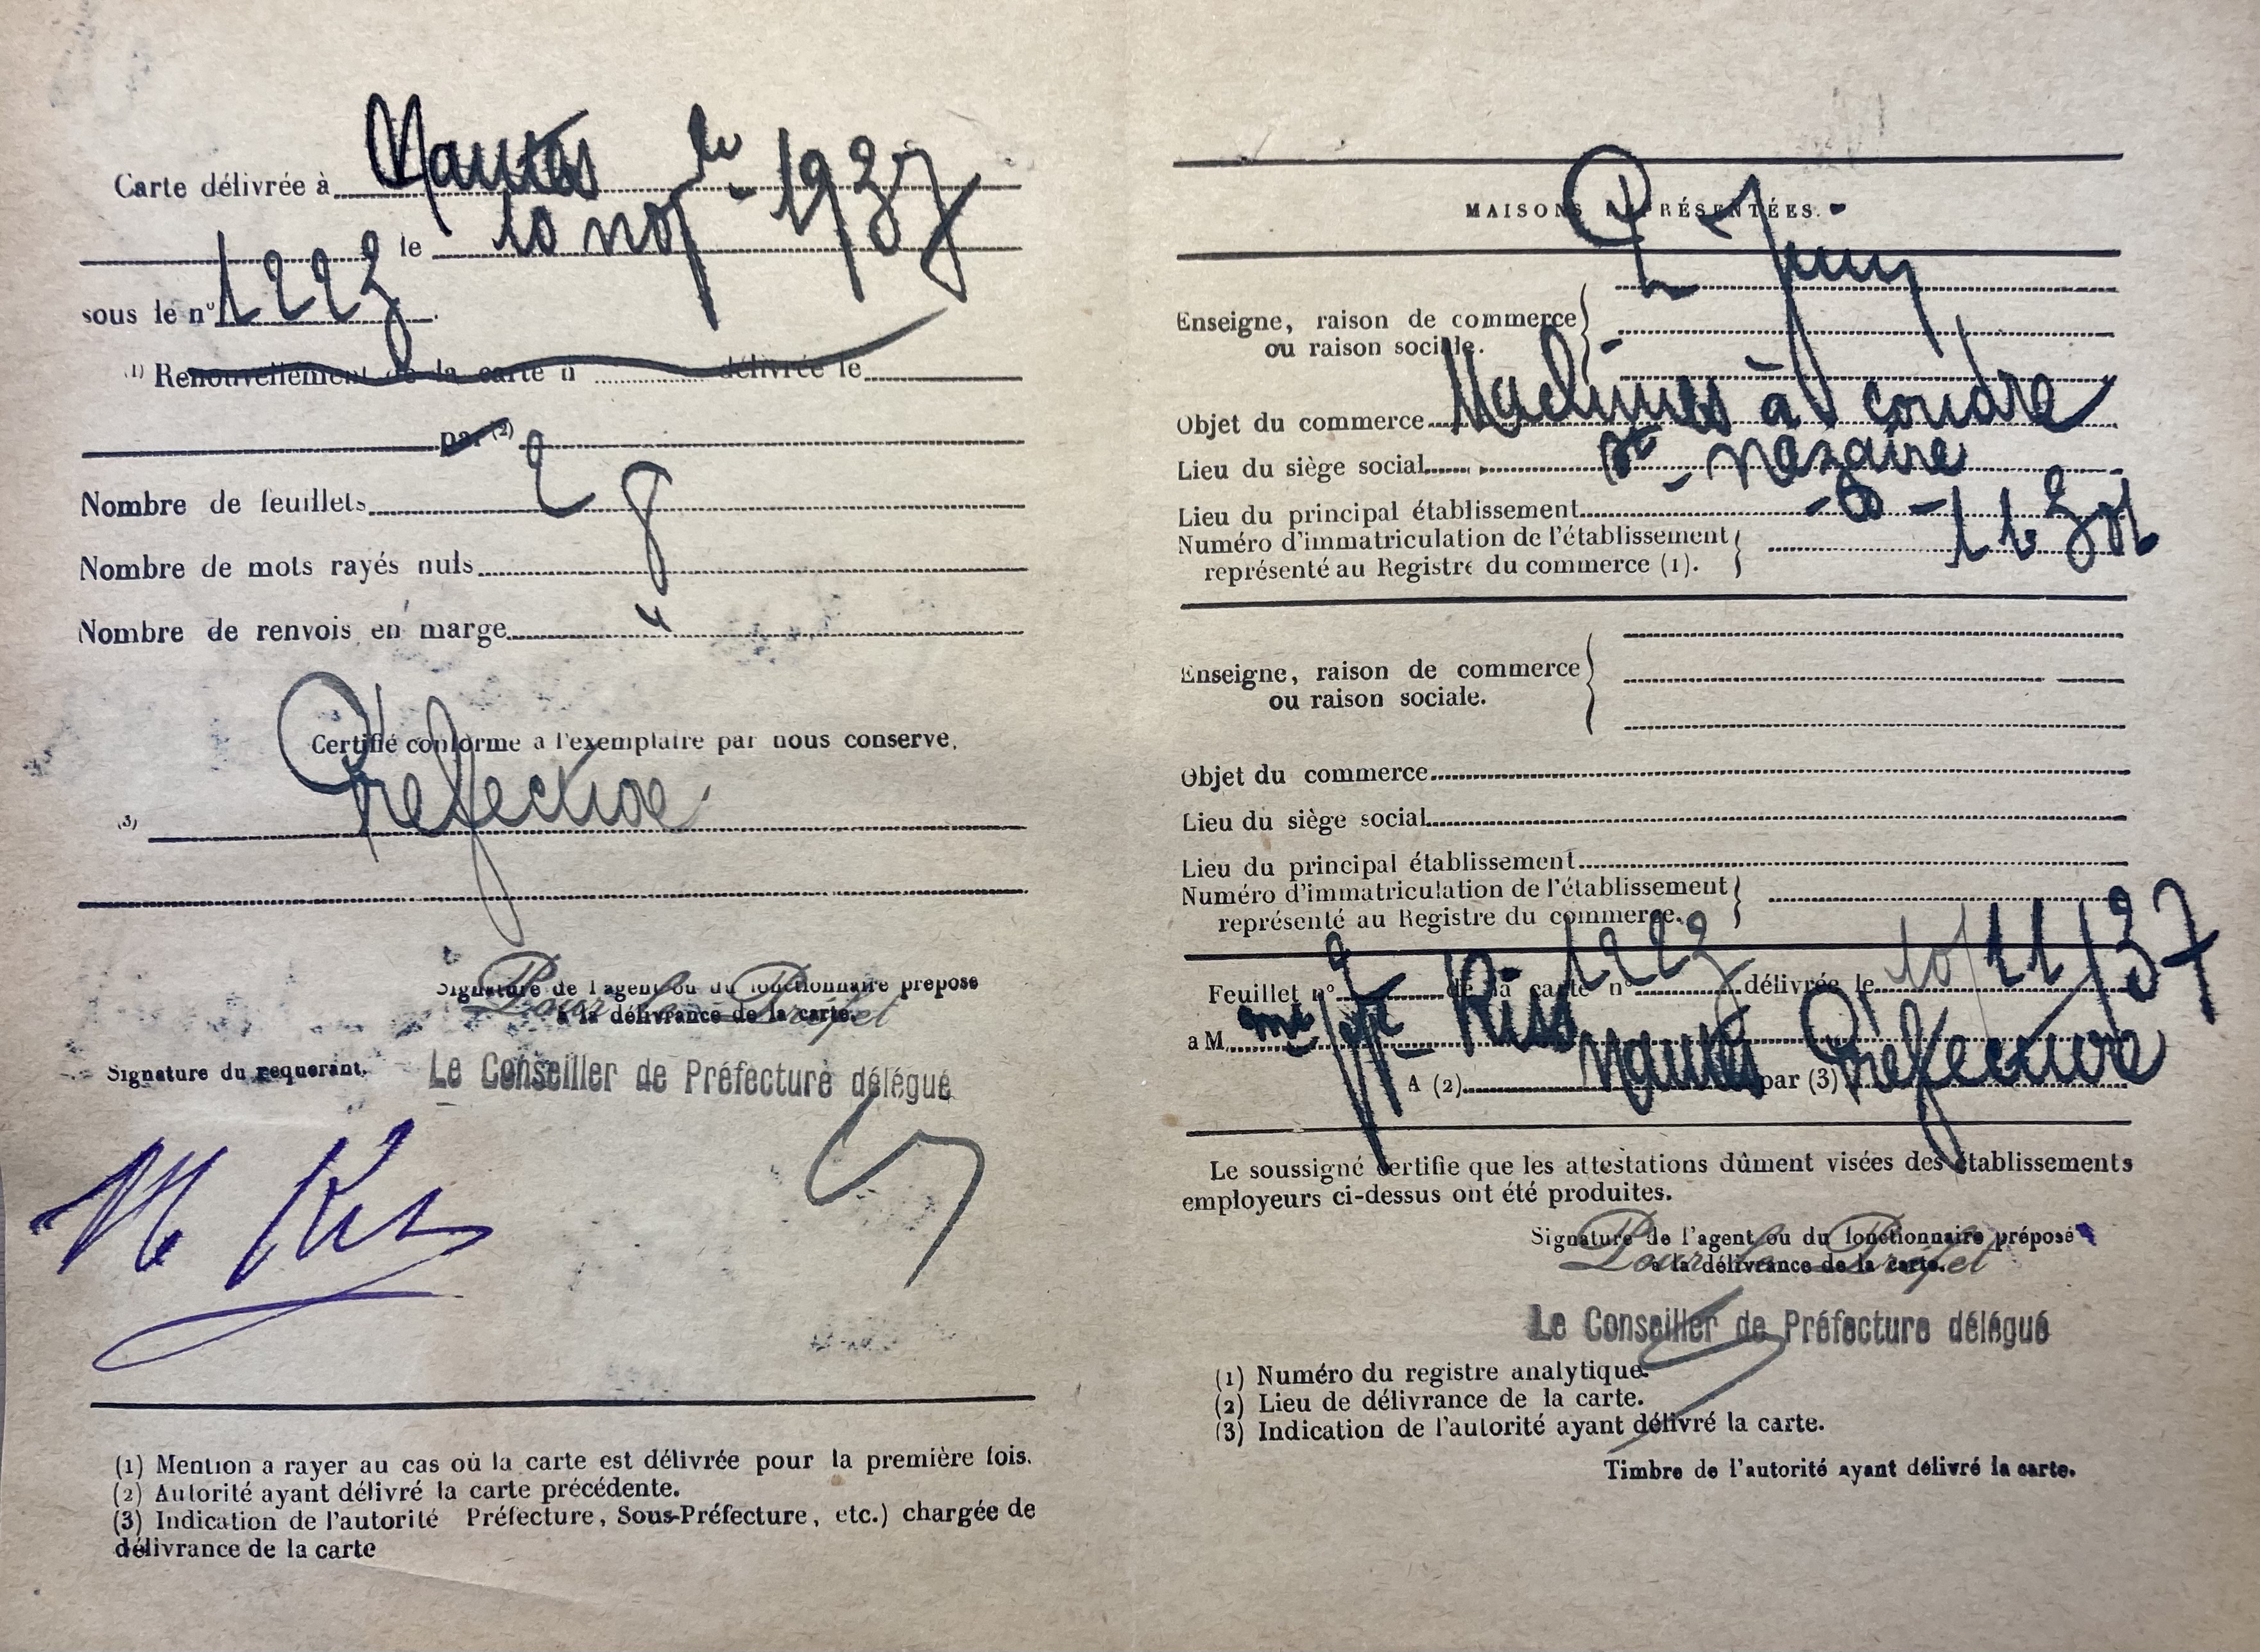 Carte délivrée à Nantes le
le 10 nov - 1937
sous le n° 1223.
(1) Renouvellement de la carte n délivrée le
par (2)
Nombre de feuillets 2
Nombre de mots rayés nuls 8
Nombre de renvois en marge
Certifié conforme a l'exemplaire par nous conserve.
(3) Préfecture
Signature de l'agent ou du fonctionnaire prepose
à la délivrance de la carte.
Pour le Préfet
Signature du requerant.
Le Conseiller de Préfecture délégué
(1) Mention a rayer au cas où la carte est délivrée pour la première fois.
(2) Autorité ayant délivré la carte précédente.
(3) Indication de l'autorité Préfecture, Sous-Préfecture, etc.) chargée de
délivrance de la carte
MAISONS REPRÉSENTÉES.
Enseigne, raison de commerce
ou raison sociale.
Objet du commerce Machines à coudre
Lieu du siège social St - Nazaire
Lieu du principal établissement
Numéro d'immatriculation de l'établissement
représenté au Registre du commerce (1).
Enseigne, raison de commerce
ou raison sociale.
Objet du commerce
Lieu du siège social
Lieu du principal établissement
Numéro d'immatriculation de l'établissement
représenté au Registre du commerce.
Feuillet n° 2 de la carte n° 1223 délivrée le 10/11/37
a M. Riss
A (2) Nantes par (3) Préfecture
Le soussigné certifie que les attestations dûment visées des établissements
employeurs ci-dessus ont été produites.
Signature de l'agent ou du fonctionnaire préposé
a la délivrance de la carte.
Pour le Préfet
Le Conseiller de Préfecture délégué
(1) Numéro du registre analytique.
(2) Lieu de délivrance de la carte.
(3) Indication de l'autorité ayant délivré la carte.
Timbre de l'autorité ayant délivré la carte.